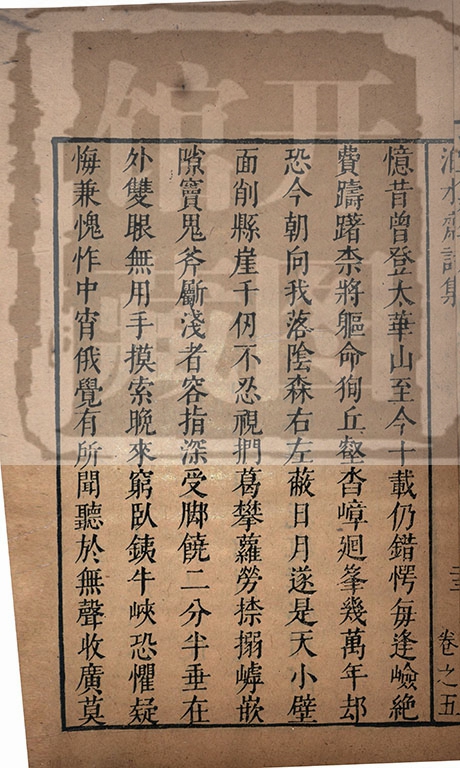 泊水齋詩集 卷之五
憶昔曾登太華山至今十載仍錯愕每逢嶮絶
費躊躇柰將軀命狥丘壑杳嶂迴峯幾萬年却
恐今朝向我落陰森右左蔽日月遂是天小壁
面削縣崖千仞不忍視捫葛攀蘿勞捺搦罅嵌
隙竇鬼斧斸淺者容指深受脚饒二分半垂在
外雙眼無用手摸索晚來窮臥銕牛峽恐懼疑
悔兼愧怍中宵俄覺有所聞聽於無聲收廣莫
开图
馆藏